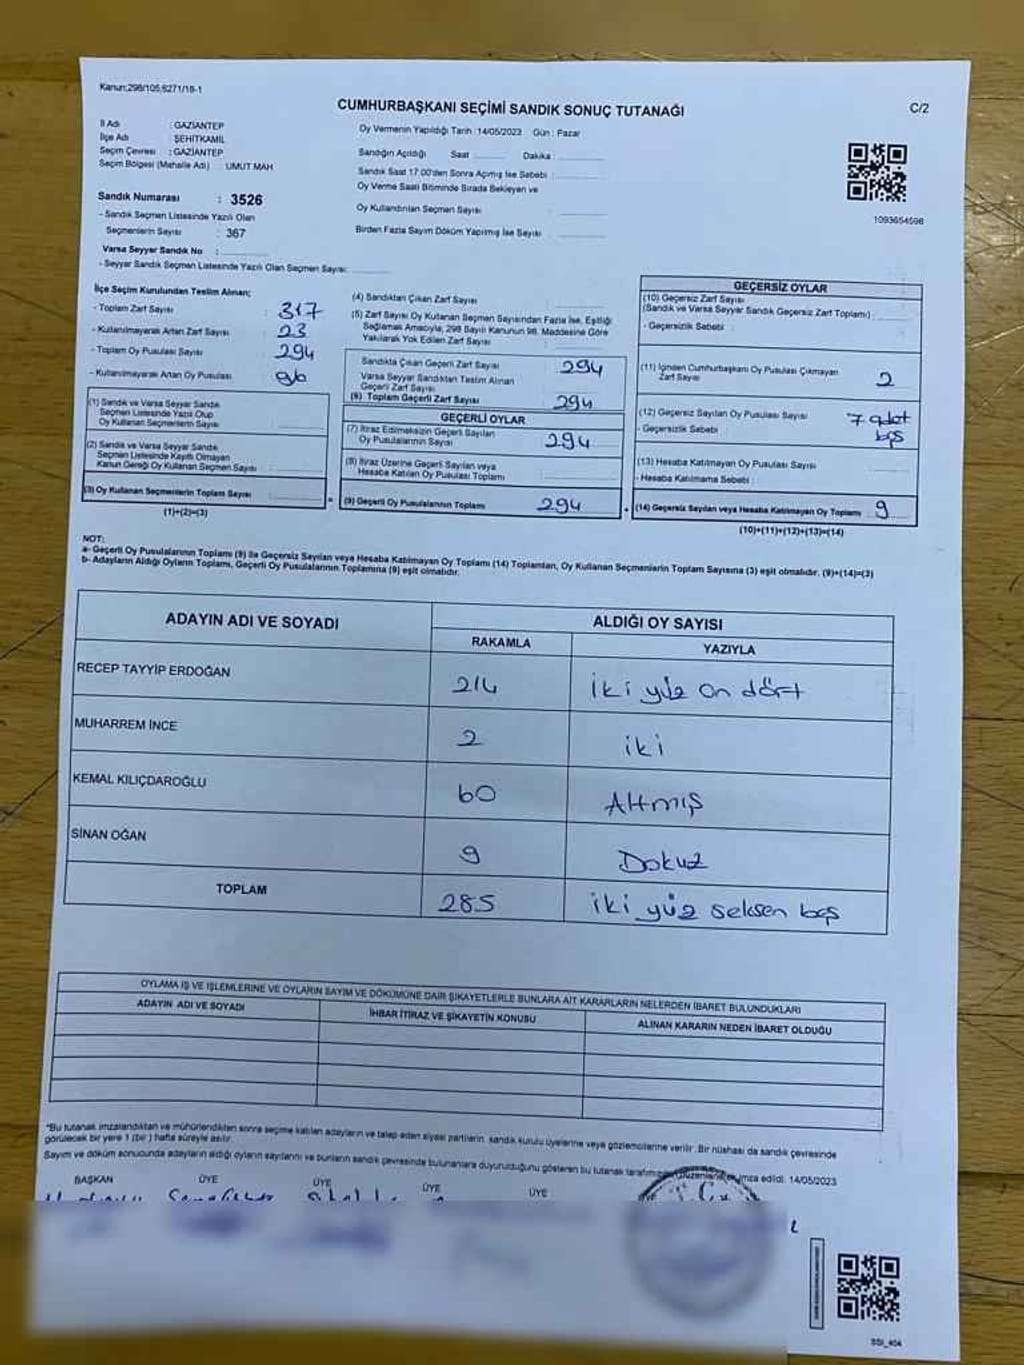 Kanun;298/105,6271/18-1
CUMHURBAŞKANI SEÇİMİ SANDIK SONUÇ TUTANAĞI
C/2
İl Adı : GAZİANTEP
İlçe Adı : ŞEHİTKAMİL
Seçim Çevresi : GAZİANTEP
Seçim Bölgesi (Mahalle Adı) : UMUT MAH
Sandık Numarası : 3526
- Sandık Seçmen Listesinde Yazılı Olan
Seçmenlerin Sayısı : 367
Varsa Seyyar Sandık No :
- Seyyar Sandık Seçmen Listesinde Yazılı Olan Seçmen Sayısı:
Oy Vermenin Yapıldığı Tarih :14/05/2023 Gün : Pazar
Sandığın Açıldığı Saat Dakika
Sandık Saat 17.00'den Sonra Açımış İse Sebebi :
Oy Verme Saati Bitiminde Sırada Bekleyen ve
Oy Kullandırılan Seçmen Sayısı :
Birden Fazla Sayım Döküm Yapılmış İse Sayısı :
1093654596
İlçe Seçim Kurulundan Teslim Alınan;
- Toplam Zarf Sayısı : 317
- Kullanılmayarak Artan Zarf Sayısı : 23
- Toplam Oy Pusulası Sayısı : 294
- Kullanılmayarak Artan Oy Pusulası :
(1) Sandık ve Varsa Seyyar Sandık
Seçmen Listesinde Yazılı Olup
Oy Kullanan Seçmenlerin Sayısı :
(2) Sandık ve Varsa Seyyar Sandık
Seçmen Listesinde Kayıtlı Olmayan
Kanun Gereği Oy Kullanan Seçmen Sayısı :
(3) Oy Kullanan Seçmenlerin Toplam Sayısı :
(1)+(2)=(3)
(4) Sandıktan Çıkan Zarf Sayısı :
(5) Zarf Sayısı Oy Kullanan Seçmen Sayısından Fazla İse, Eşitliği
Sağlamak Amacıyla, 298 Sayılı Kanunun 98. Maddesine Göre
Yakılarak Yok Edilen Zarf Sayısı :
Sandıkta Çıkan Geçerli Zarf Sayısı : 294
Varsa Seyyar Sandıktan Teslim Alınan
Geçerli Zarf Sayısı :
(6) Toplam Geçerli Zarf Sayısı : 294
GEÇERLİ OYLAR
(7) İtiraz Edilmeksizin Geçerli Sayılan
Oy Pusulalarının Sayısı : 294
(8) İtiraz Üzerine Geçerli Sayılan veya
Hesaba Katılan Oy Pusulası Toplamı :
(9) Geçerli Oy Pusulalarının Toplamı : 294
GEÇERSİZ OYLAR
(10) Geçersiz Zarf Sayısı
(Sandık ve Varsa Seyyar Sandık Geçersiz Zarf Toplamı) :
- Geçersizlik Sebebi :
(11) İçinden Cumhurbaşkanı Oy Pusulası Çıkmayan
Zarf Sayısı : 2
(12) Geçersiz Sayılan Oy Pusulası Sayısı : 7 adet
- Geçersizlik Sebebi : boş
(13) Hesaba Katılmayan Oy Pusulası Sayısı :
- Hesaba Katılmama Sebebi :
(14) Geçersiz Sayılan veya Hesaba Katılmayan Oy Toplamı : 9
(10)+(11)+(12)+(13)=(14)
NOT:
a- Geçerli Oy Pusulalarının Toplamı (9) ile Geçersiz Sayılan veya Hesaba Katılmayan Oy Toplamı (14) Toplamları, Oy Kullanan Seçmenlerin Toplam Sayısına (3) eşit olmalıdır. (9)+(14)=(3)
b- Adayların Aldığı Oyların Toplamı, Geçerli Oy Pusulalarının Toplamına (9) eşit olmalıdır.
ADAYIN ADI VE SOYADI
ALDIĞI OY SAYISI
RAKAMLA YAZIYLA
RECEP TAYYİP ERDOĞAN 214 iki yüz on dört
MUHARREM İNCE 2 iki
KEMAL KILIÇDAROĞLU 60 Altmış
SİNAN OĞAN 9 Dokuz
TOPLAM 285 iki yüz seksen beş
OYLAMA İŞ VE İŞLEMLERİNE VE OYLARIN SAYIM VE DÖKÜMÜNE DAİR ŞİKAYETLERLE BUNLARA AİT KARARLARIN NELERDEN İBARET BULUNDUKLARI
ADAYIN ADI VE SOYADI İHBAR İTİRAZ VE ŞİKAYETİN KONUSU ALINAN KARARIN NEDEN İBARET OLDUĞU
*Bu tutanak imzalandıktan ve mühürlendikten sonra seçime katılan adayların ve talep eden siyasi partilerin sandık kurulu üyelerine veya gözlemcilerine verilir. Bir nüshası da sandık çevresinde
görülecek bir yere 1 (bir ) hafta süreyle asılır.
Sayım ve döküm sonucunda adayların aldığı oyların sayılarını ve bunların sandık çevresinde bulunanlara duyurulduğunu gösteren bu tutanak tarafımızdan düzenlenerek imza edildi. 14/05/2023
BAŞKAN ÜYE ÜYE ÜYE ÜYE ÜYE
SSI_404